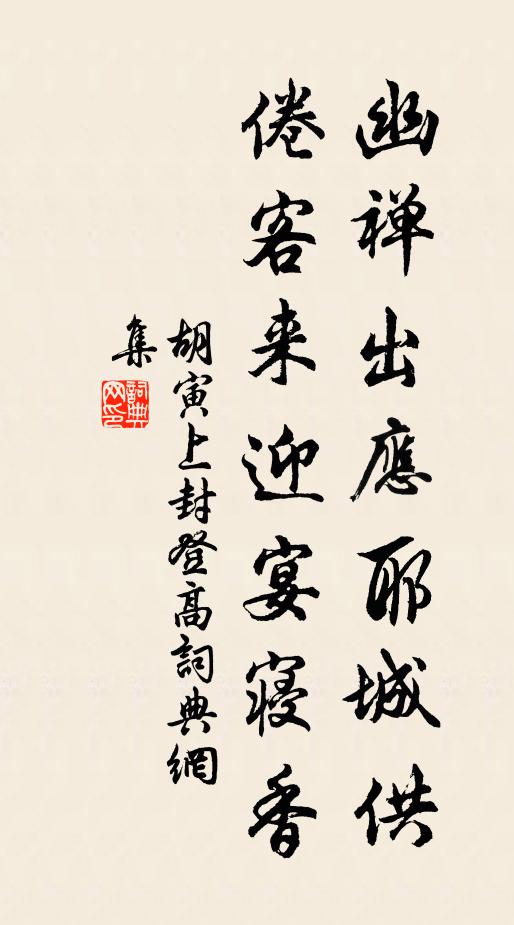 幽禅出應耶城供
倦客来迎宴寝香
胡寅上封登高詞典網
集
詞典
网印